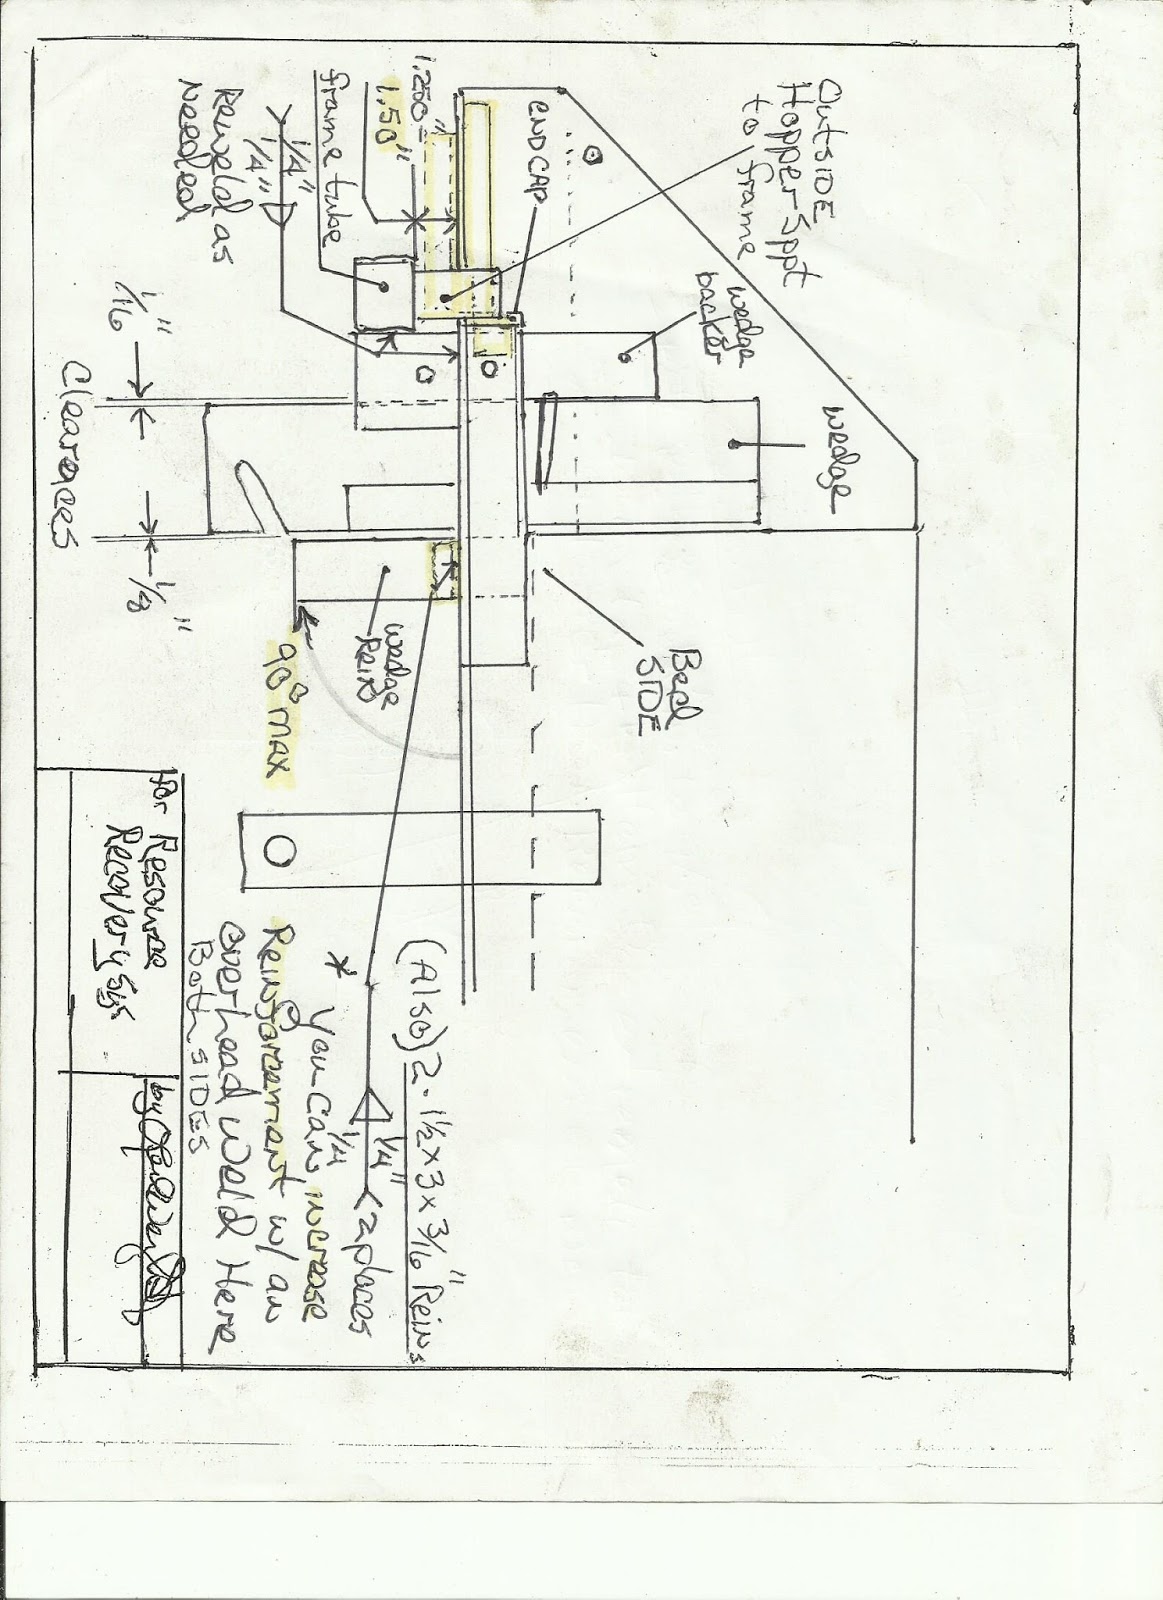 OutSIDE
Hopper Sppt
to frame
END CAP
1.250"
1.50"
frame tube
1/4"
1/4"
Reweld as
Needed
wedge
backer
wedge
1/16"
Clearaces
1/8"
Bed
SIDE
wedge
Rein
90° max
(Also) 2 - 1 1/2 x 3 x 3/16" Reins
1/4"
1/4
2 places
* You Can increase
Reinforcement w/ an
overhead weld Here
Both SIDES
for Resource
Recovery Sys
by